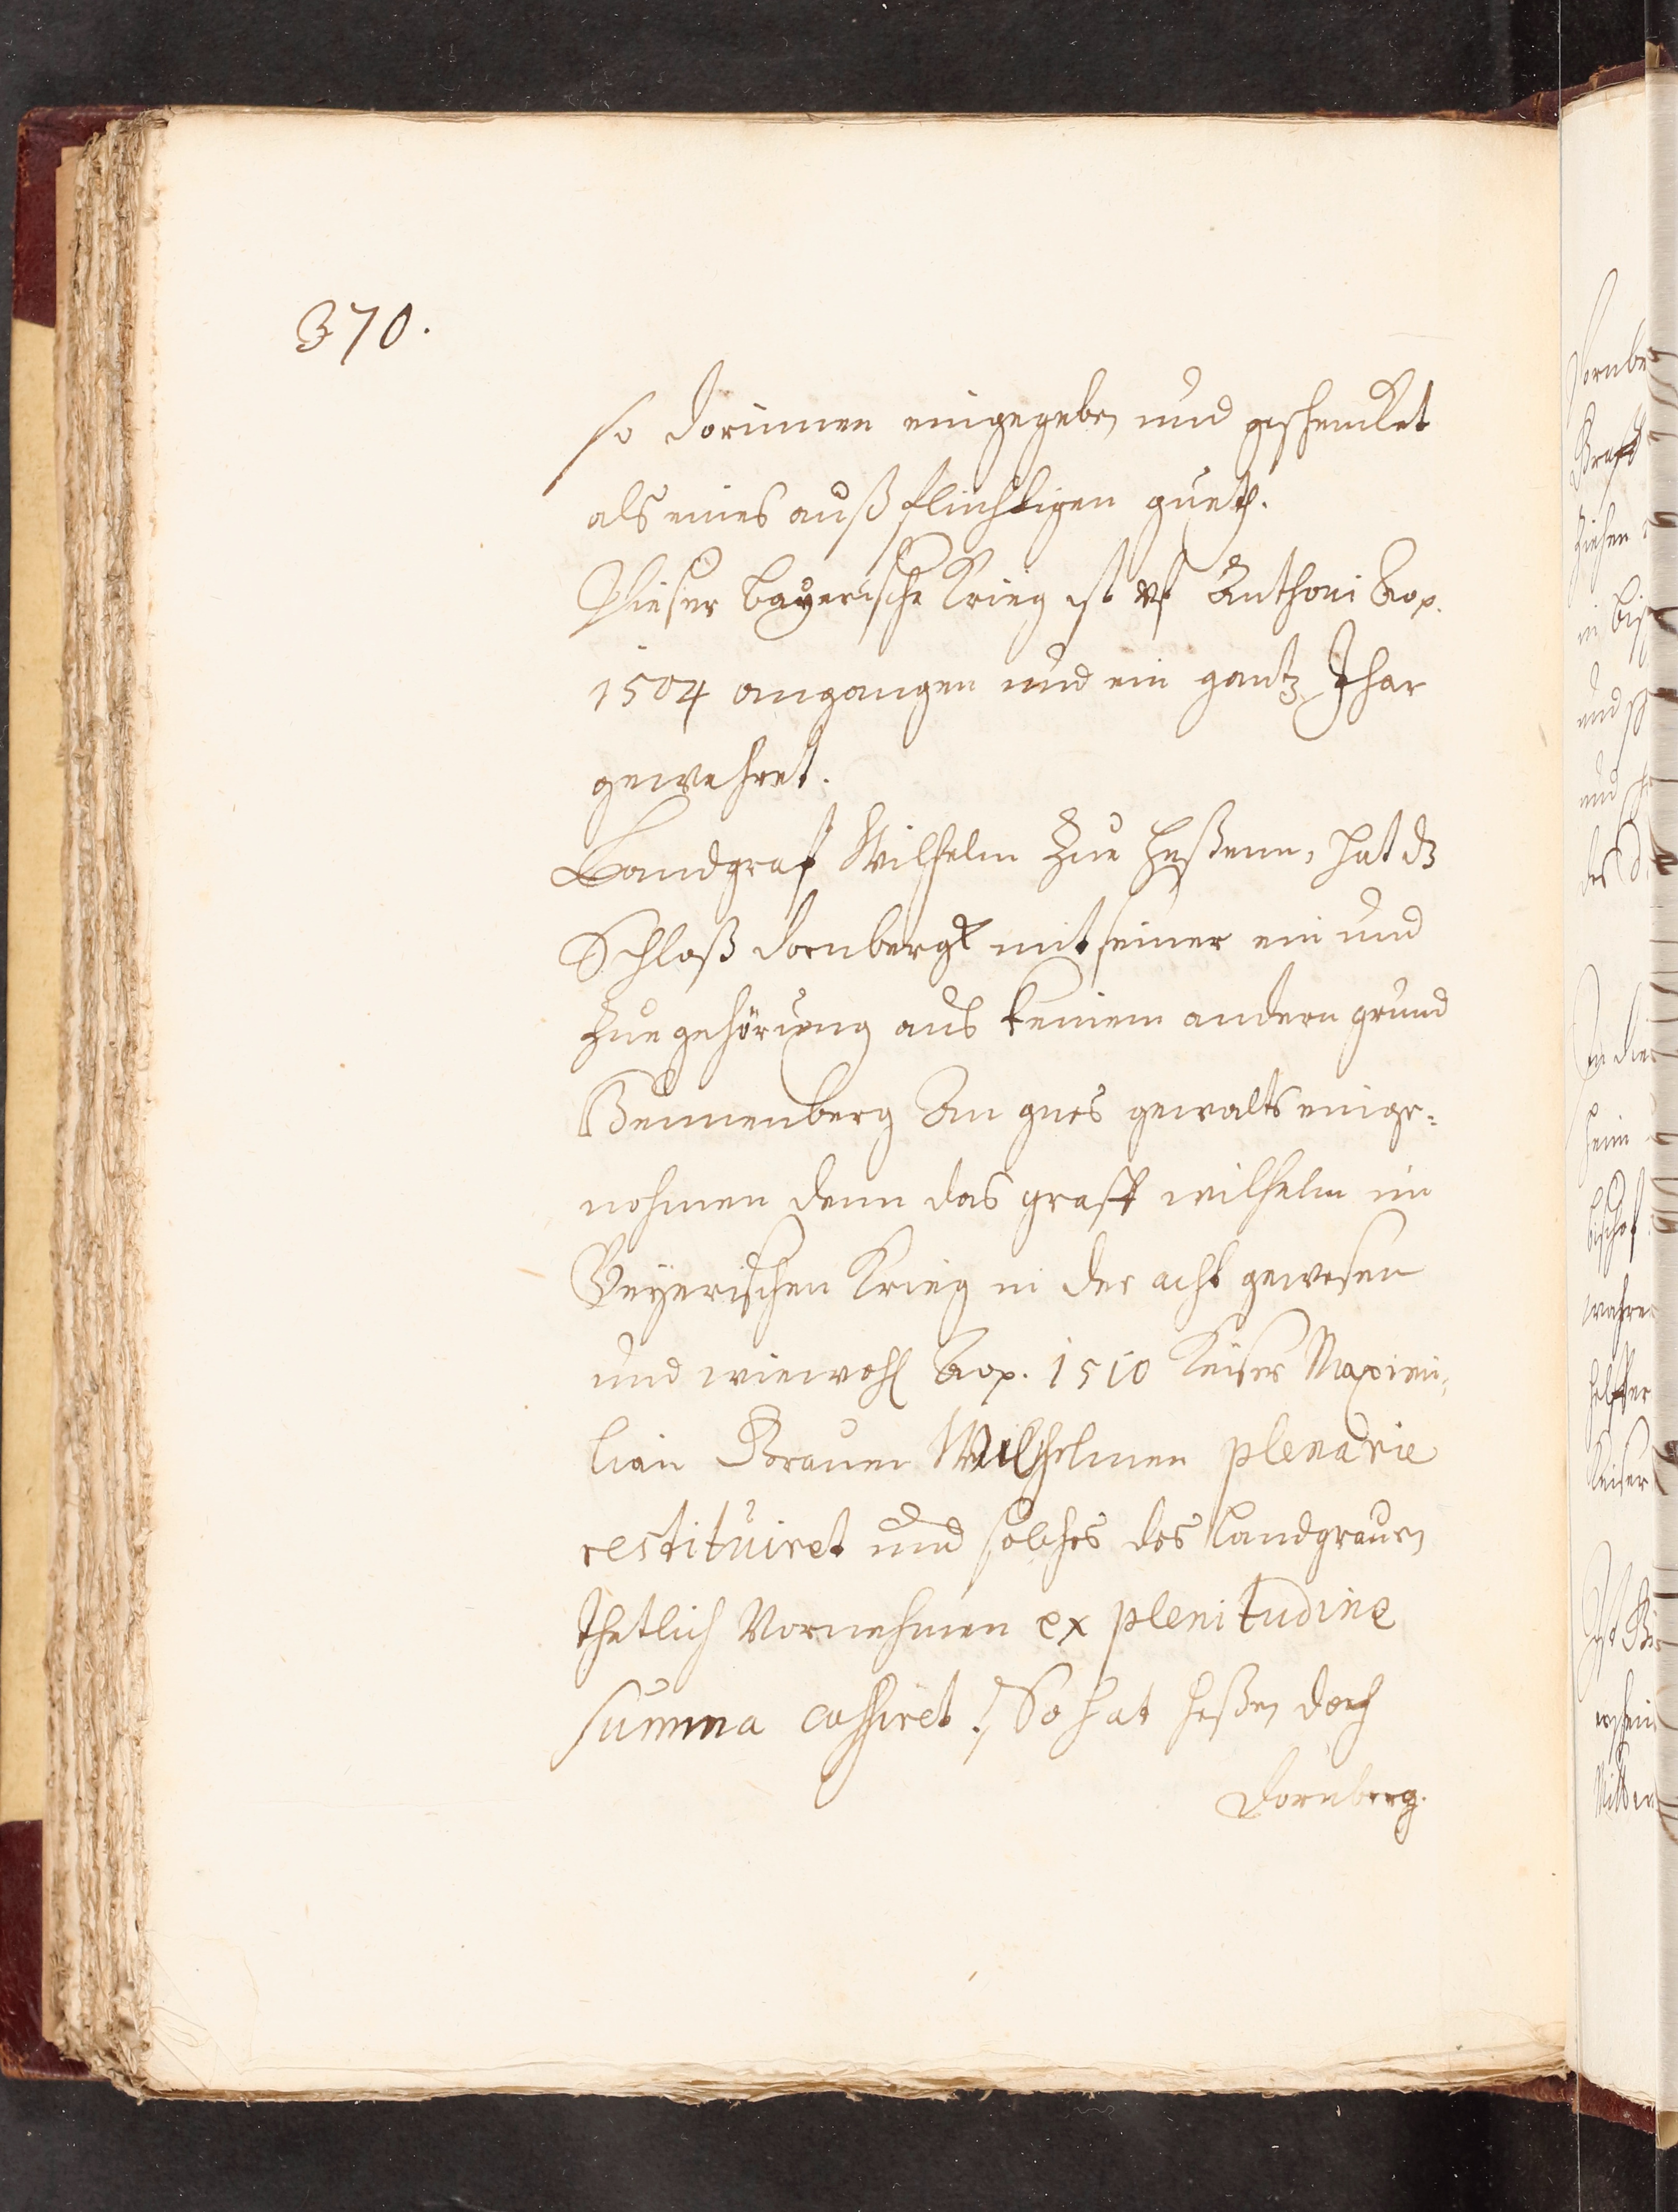 370.
so dorinnen eingegeben und geschencket
als eines außflüchtigen gueth.
Dieser bayerische Krieg ist uf Anthoni Aop.
1504 angangen und ein gantz Jhar
gewehret.
Landgraf Wilhelm Zue Heßenn, hat dz
Schloß dornbergk mit seiner ein und
Zuegehörung aus keinem andern grund
gewalts einge-
nohmen denn das graff wilhelm im
Beyerischen Krieg in der acht gewesen
und wiewohl Aop. 1510 Keiser Maximi-
lian Grauen Wilhelmen plenarie
restituiret und solches des Landgrauen
thetlich Vornehmen ex plenitudine
summa cassiret. So hat Heßen doch
Dornberg.